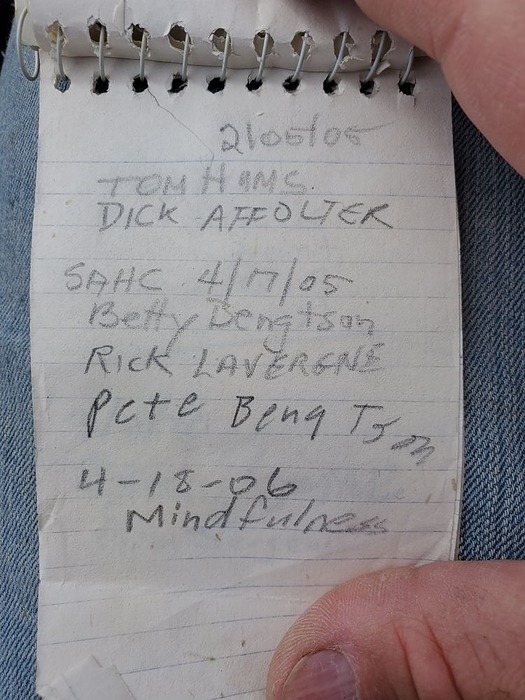 2/05/05
TOM HAMS
DICK AFFOLTER
SAHC 4/17/05
Betty Bengtson
RICK LAVERGNE
Pete Bengtson
4-18-06
Mindfulness